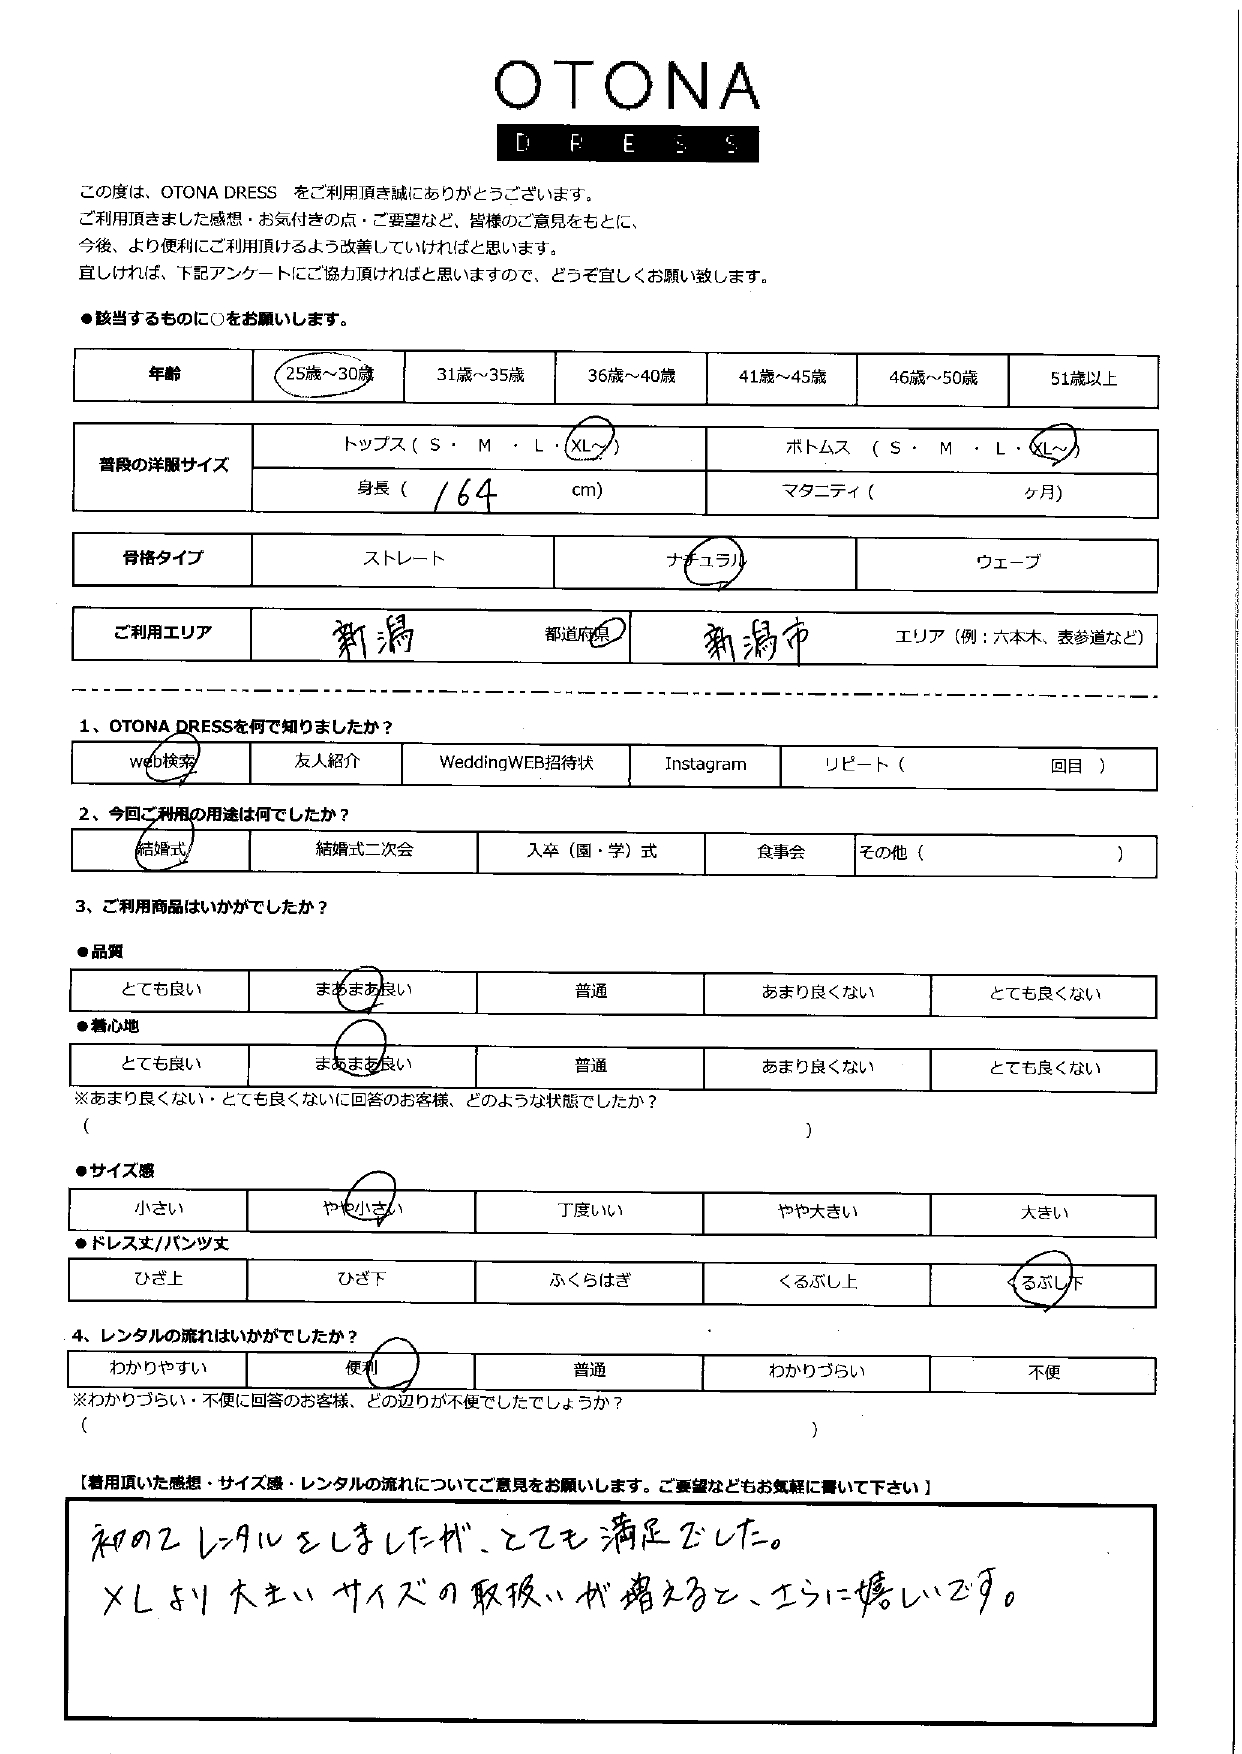 OTONA
DRESS
この度は、OTONA DRESS　をご利用頂き誠にありがとうございます。
ご利用頂きました感想・お気付きの点・ご要望など、皆様のご意見をもとに、
今後、より便利にご利用頂けるよう改善していければと思います。
宜しければ、下記アンケートにご協力頂ければと思いますので、どうぞ宜しくお願い致します。
●該当するものに○をお願いします。
年齢 25歳～30歳 31歳～35歳 36歳～40歳 41歳～45歳 46歳～50歳 51歳以上
普段の洋服サイズ トップス ( S ・ M ・ L ・ XL～ ) ボトムス ( S ・ M ・ L ・ XL～ )
身長 ( 164 cm) マタニティ ( ヶ月)
骨格タイプ ストレート ナチュラル ウェーブ
ご利用エリア 新潟 都道府県 新潟市 エリア（例：六本木、表参道など）
1、OTONA DRESSを何で知りましたか？
web検索 友人紹介 WeddingWEB招待状 Instagram リピート（ 回目 ）
2、今回ご利用の用途は何でしたか？
結婚式 結婚式二次会 入卒（園・学）式 食事会 その他（ ）
3、ご利用商品はいかがでしたか？
●品質
とても良い まあまあ良い 普通 あまり良くない とても良くない
●着心地
とても良い まあまあ良い 普通 あまり良くない とても良くない
※あまり良くない・とても良くないに回答のお客様、どのような状態でしたか？
( )
●サイズ感
小さい やや小さい 丁度いい やや大きい 大きい
●ドレス丈/パンツ丈
ひざ上 ひざ下 ふくらはぎ くるぶし上 くるぶし下
4、レンタルの流れはいかがでしたか？
わかりやすい 便利 普通 わかりづらい 不便
※わかりづらい・不便に回答のお客様、どの辺りが不便でしたでしょうか？
( )
【着用頂いた感想・サイズ感・レンタルの流れについてご意見をお願いします。ご要望などもお気軽に書いて下さい】
初めてレンタルをしましたが、とても満足でした。
XLより大きいサイズの取扱いが増えると、さらに嬉しいです。